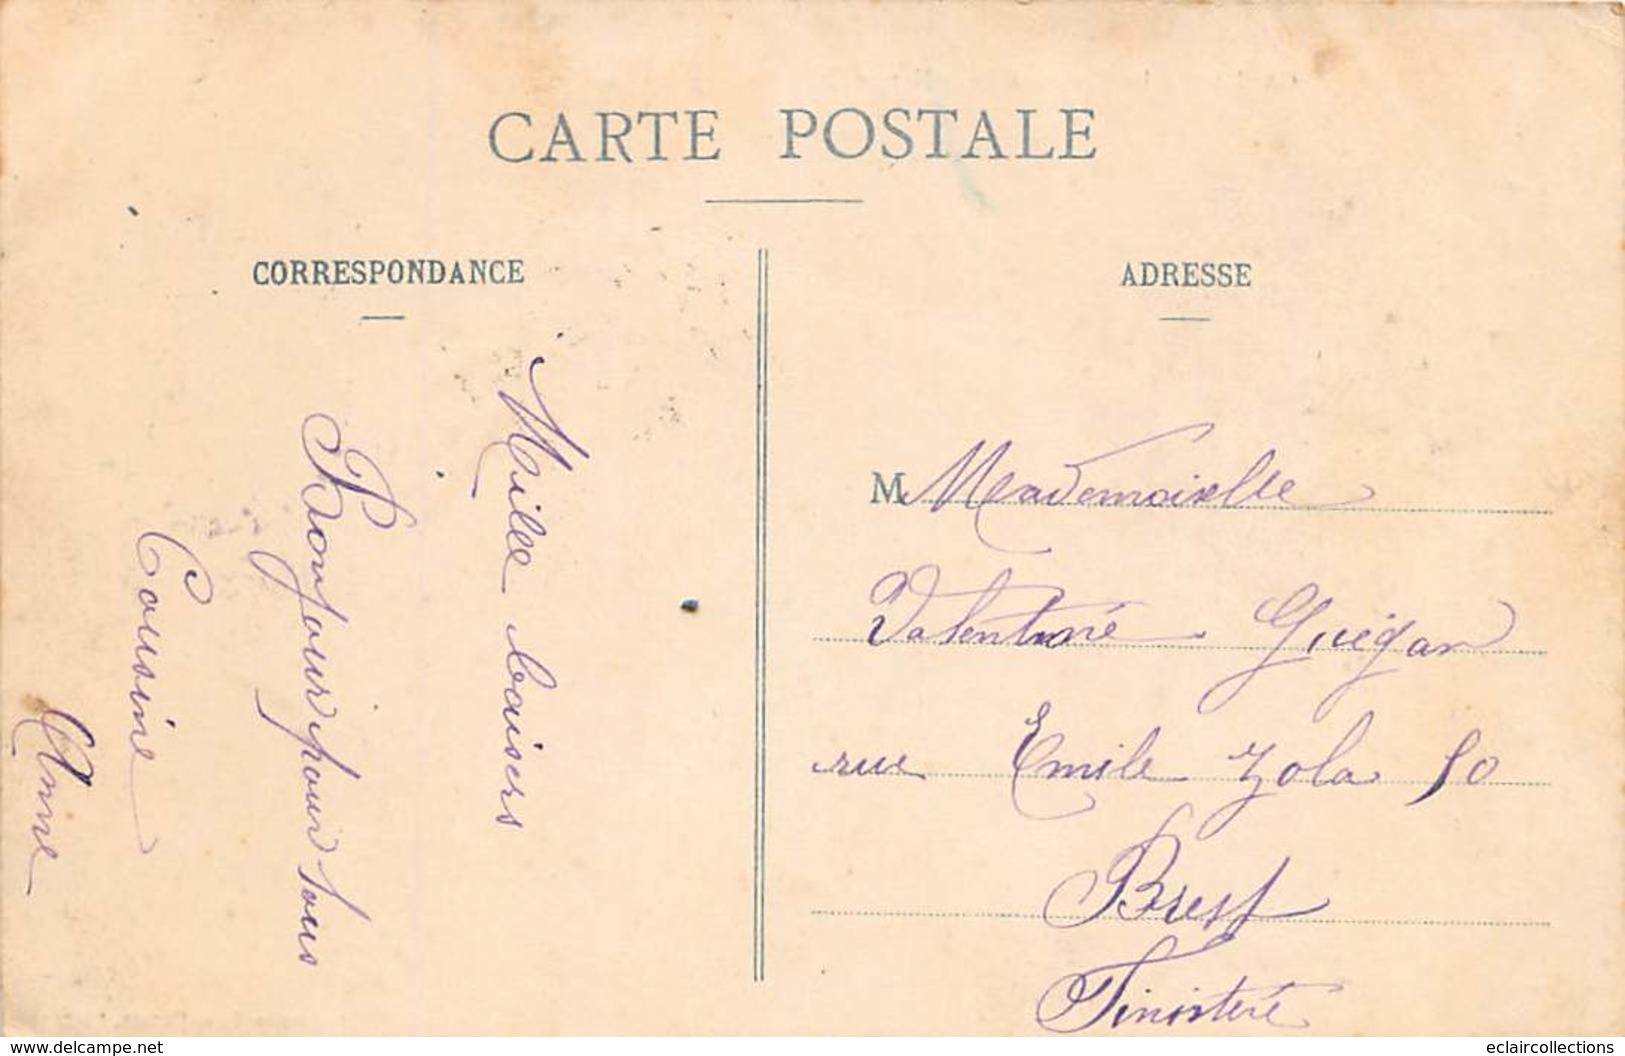 CARTE POSTALE
CORRESPONDANCE
Mille baisers
Bonjour pour tous
Cousine
Anne
ADRESSE
M Mademoiselle
Valentine Guégan
rue Emile Zola 50
Brest
Finistère
delcampe.net
eclaircollections